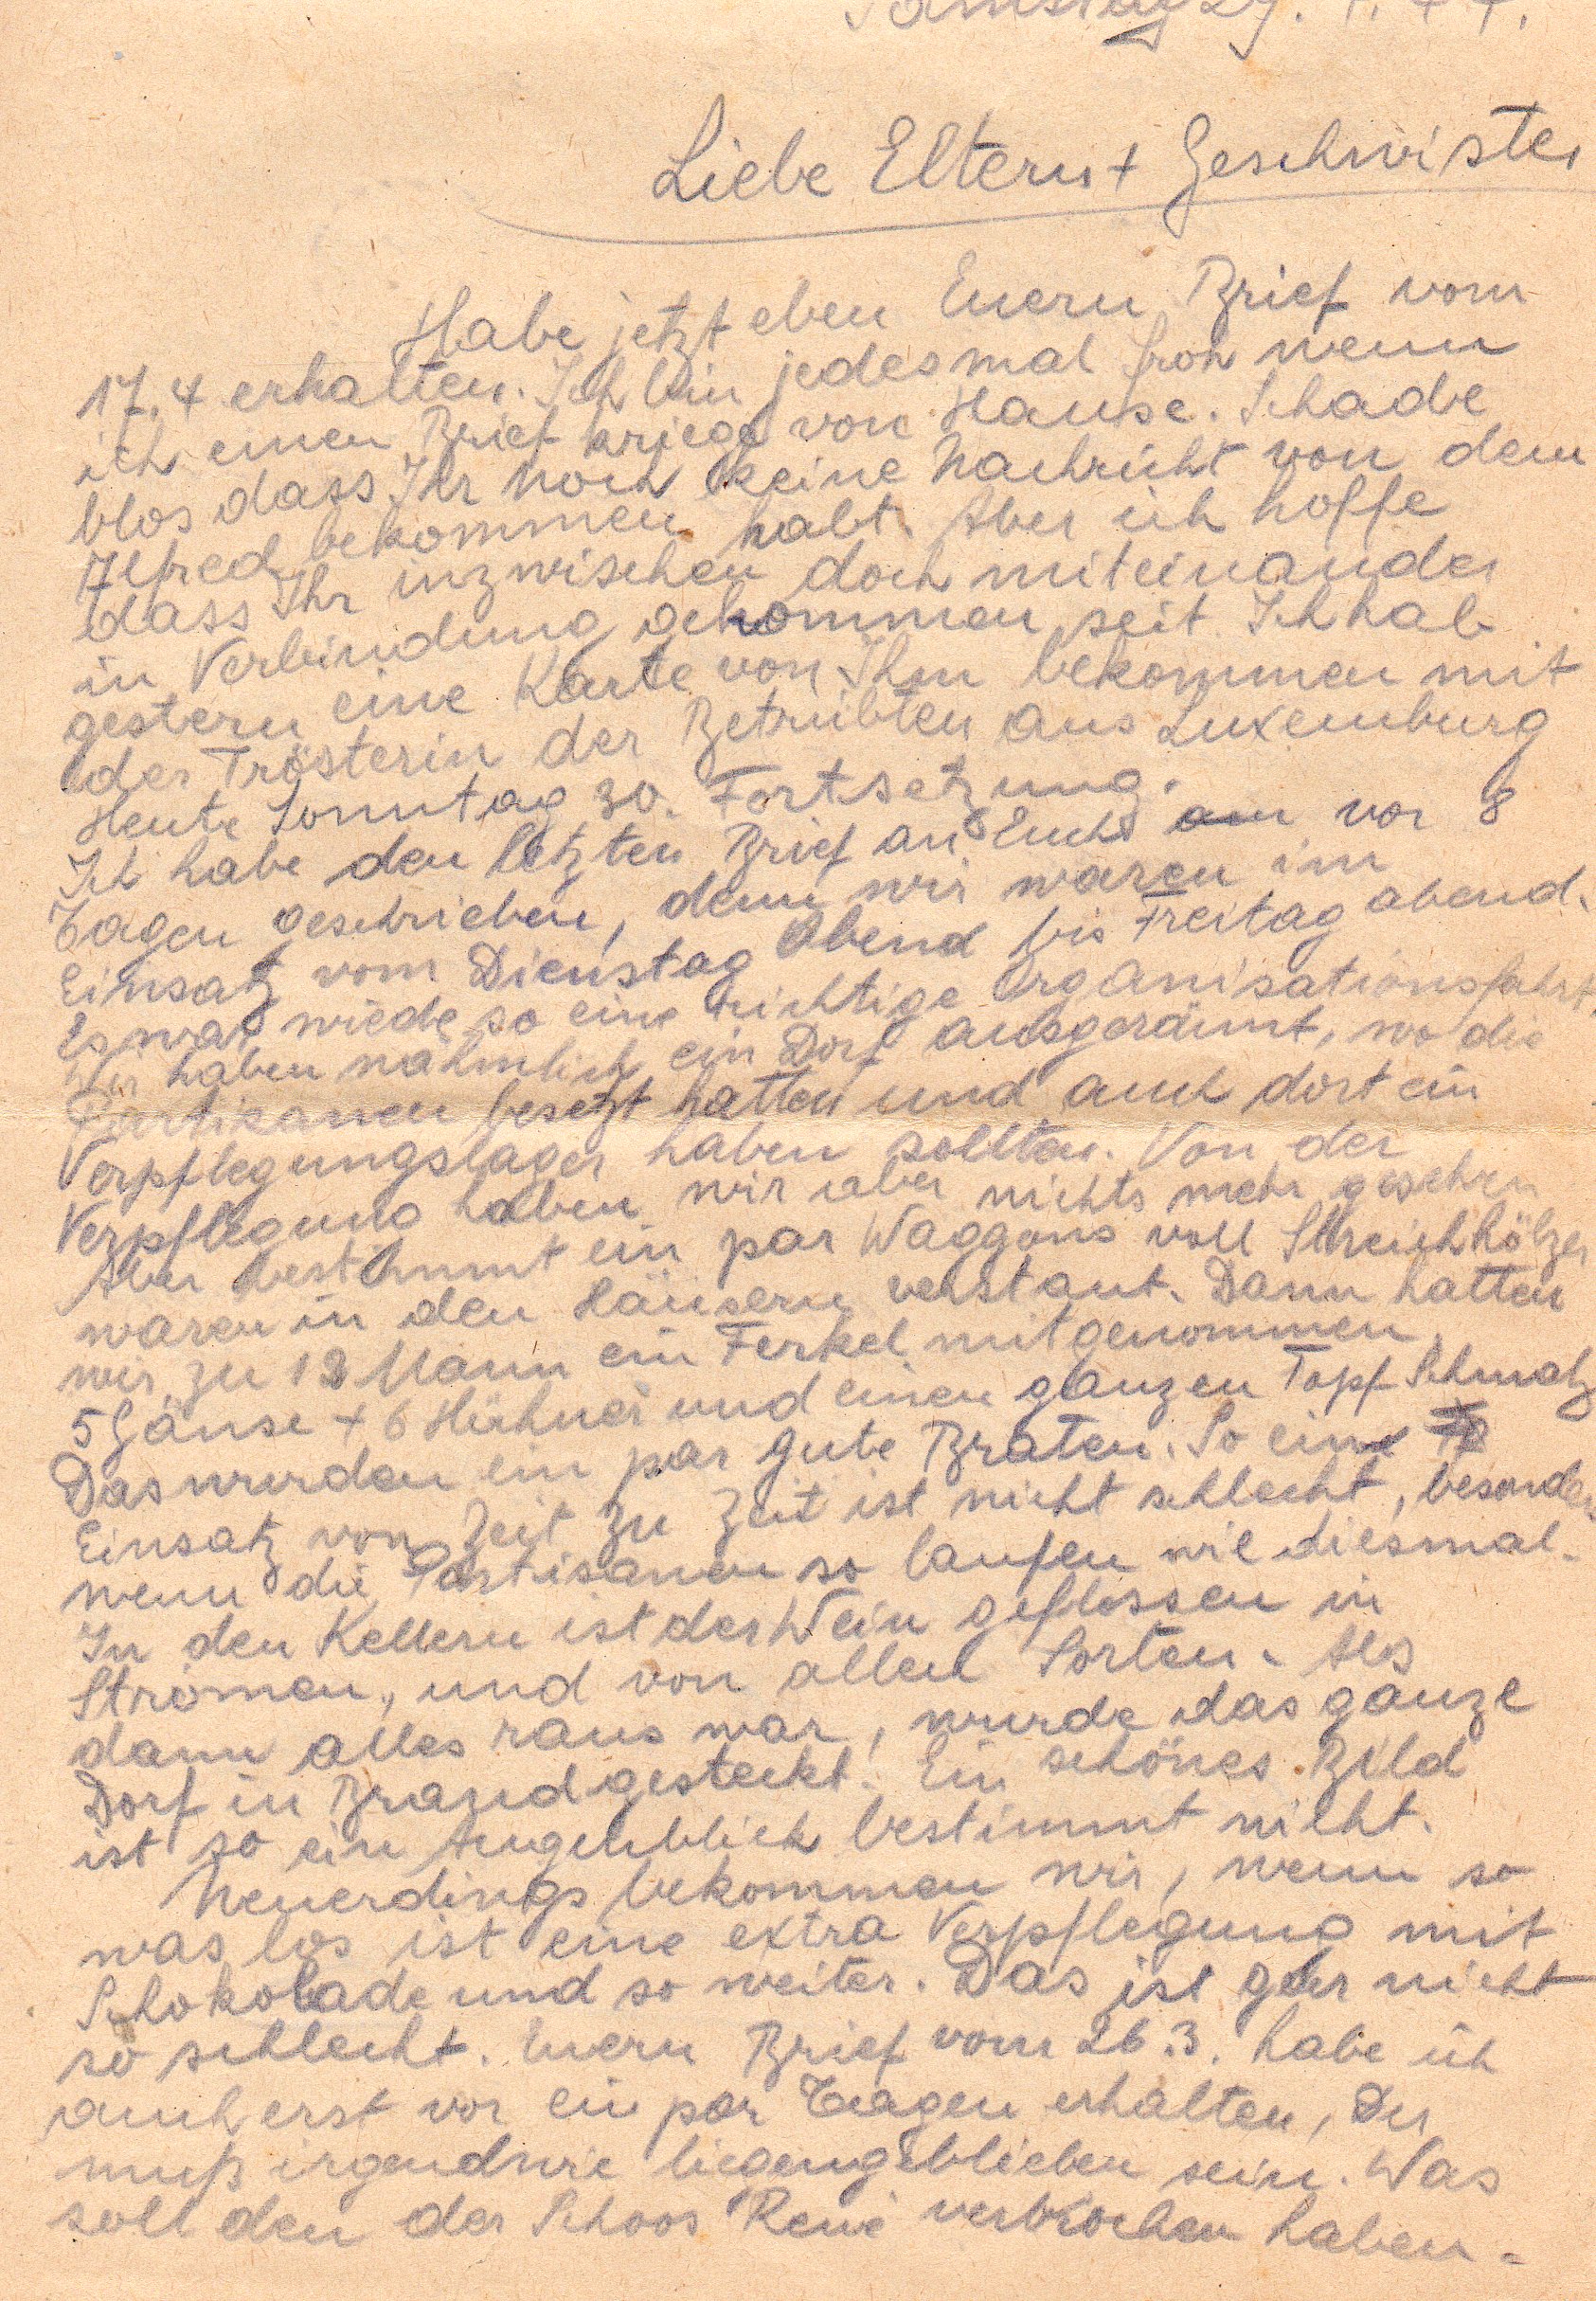 Samstag 29. 4. 44.
Liebe Eltern + Geschwister
Habe jetzt eben Euern Brief vom
17.4 erhalten. Ich bin jedesmal froh wenn
ich einen Brief kriege von Hause. Schade
blos dass Ihr noch keine Nachricht von dem
Alfred bekommen habt. Aber ich hoffe
dass Ihr inzwischen doch miteinander
in Verbindung gekommen seit. Ich hab
gestern eine Karte von Ihm bekommen mit
der Trösterin der Betrübten aus Luxemburg
Heute Sonntag 30. Fortsetzung.
Ich habe den letzten Brief an Euch am vor 8
Tagen geschrieben, denn wir waren im
Einsatz vom Dienstag Abend bis Freitag abend.
Es war wiede so eine richtige Organisationsfahrt
Wir haben nähmlich ein Dorf ausgeräumt, wo die
Partisanen besetzt hatten und auch dort ein
Verpflegungslager haben sollten. Von der
Verpflegung haben wir aber nichts mehr gesehen
Aber bestimmt ein par Waggons voll Streichhölzer
waren in den Häusern verstaut. Dann hatten
wir zu 12 Mann ein Ferkel mitgenommen,
5 Gänse + 6 Hühner und einen ganzen Topf Schmalz
Das wurden ein par gute Braten. So eine
Einsatz von Zeit zu Zeit ist nicht schlecht, besonders
wenn die Partisanen so laufen wie diesmal.
In den Kellern ist der Wein geflossen in
Strömen, und von allen Sorten. Als
dann alles raus war, wurde das ganze
Dorf in Brand gesteckt. Ein schönes Bild
ist so ein Augenblick bestimmt nicht.
Neuerdings bekommen wir, wenn so
was los ist eine extra Verpflegung mit
Schokolade und so weiter. Das ist gar nicht
so schlecht. Euern Brief vom 26.3. habe ich
auch erst vor ein par Tagen erhalten, Der
muß irgendwie liegengeblieben sein. Was
soll den der Schoos René verbrochen haben.